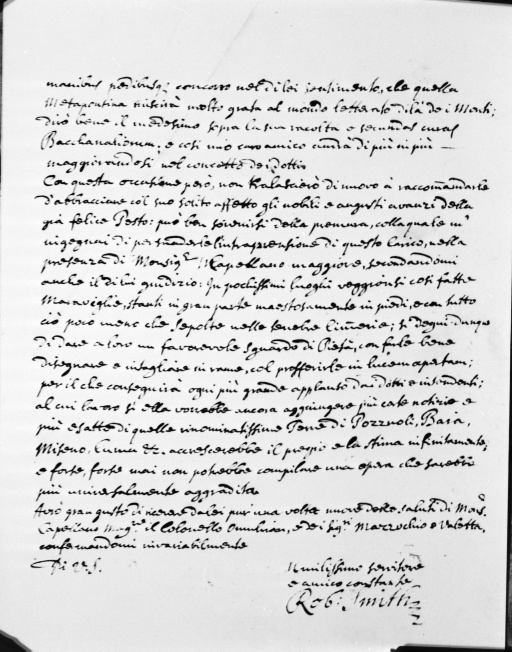 manibus pedibusq; concorro nel di lei sentimento, che quella
Metapontina riuscirà molto grata al mondo letterato di là de i Monti;
dirò bene il medesimo sopra la sua racolta e secundas curas
Bacchanalionem, e così mio caro amico andrà di più in più
maggiorandosi nel concetto dei dotti
Con questa occasione però, non tralascierò di nuovo à raccomandarle
d'abbracciare col suo solito affetto gli nobili e augusti avanzi della
già felice Pesto: può ben sovenirsi della premura, colla quale m'
ingegnai di persuaderle l'intrapresazione di questo carico, nella
presenza di Monsigr. Capellano maggiore, secondandomi
anche il di lui giudizio: In pochissimi luoghi veggionsi così fatte
maraviglie, stanti in gran parte maestosamente in piedi, e con tutto
ciò poco meno che sepolte nelle tenebre Cimerie; si degni dunque
di dare a loro un favorevole sguardo di Pietà, con farle bene
disegnare e intagliare in rame, col profferirle in lucem apertam;
per il che conseguirà ogni più grande applauso da i dotti e intendenti;
al cui lavoro si ella vorrebbe ancora aggiungere più certe notizie e
più esatte di quelle rinominatissime Terre di Pozzuoli, Baia,
Miseno, Cuma &c. accrescerebbe il pregio e la stima infinitamente;
e forte, forte mai non potrebbe compilare una opera che sarebbe
più universalmente aggradita
Avrò gran gusto di ricevere da lei pur una volta nuove delle saluti di Mons.
Capellano Magr. il Colonello e dei Sigri. Mazzochio e Valetta,
confermandomi invariabilmente
Di V.S.
Umilissimo servitore
e amico constante
Rob: Smith